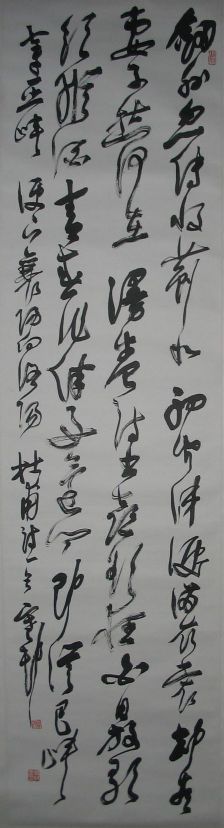 劍外忽傳收薊北初聞涕淚滿衣裳却看
妻子愁何在漫卷詩書喜欲狂白日放歌
須縱酒青春作伴好還鄉即從巴峽
穿巫峽便下襄陽向洛陽杜甫詩一首